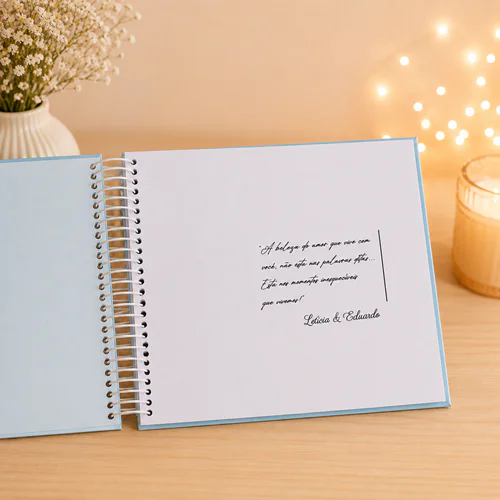 "A beleza do amor que vive com
você, não esta nas palavras ditas...
Está nos momentos inesquecíveis
que vivemos!
Letícia & Eduardo